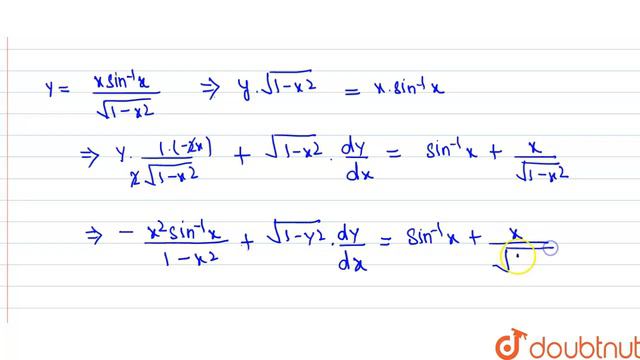 y = x sin⁻¹x / √(1-x2) ⇒ y · √(1-x2) = x · sin⁻¹x
⇒ y · 1·(-2x) / 2√(1-x2) + √(1-x2) · dy/dx = sin⁻¹x + x / √(1-x2)
⇒ - x² sin⁻¹x / 1-x² + √(1-y2) · dy/dx = sin⁻¹x + x / √
doubtnut